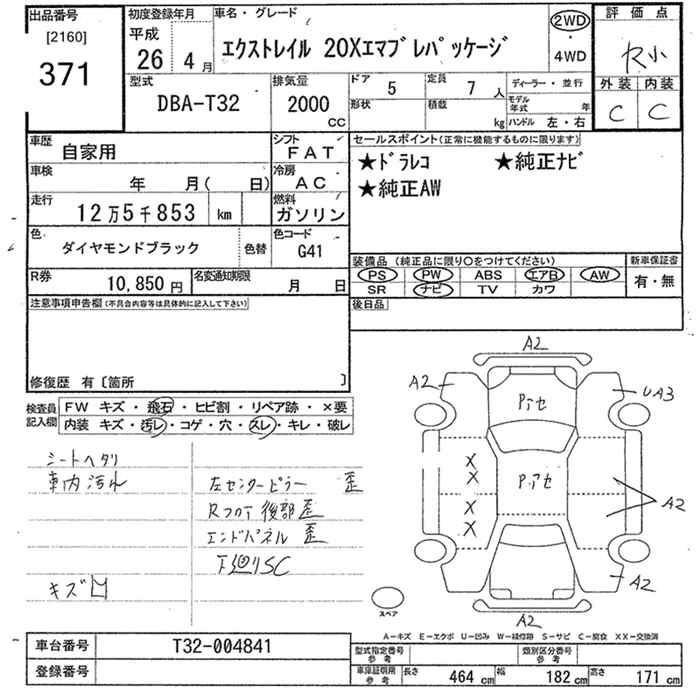 出品番号
[2160]
371
初度登録年月
平成
26年 4月
車名・グレード
エクストレイル 20Xエマブレパッケージ
2WD
・
4WD
評価点
R小
外装 内装
C C
型式
DBA-T32
排気量
2000
CC
ドア 5
定員 7人
形状
積載 kg
ディーラー・並行
モデル年式 年
ハンドル 左・右
車歴
自家用
シフト
FAT
車検
年 月( 日)
冷房
AC
走行
12万5千853 km
燃料
ガソリン
色
ダイヤモンドブラック
色替
色コード
G41
R券
10,850円
名変通知期限
月 日
セールスポイント(正常に機能するものに限ります)
★ドラレコ ★純正ナビ
★純正AW
装備品(純正品に限り○をつけてください)
新車保証書
PS PW ABS エアB AW
SR ナビ TV カワ
有・無
注意事項申告欄(不具合内容等は具体的に記入して下さい)
後日品
修復歴 有〔箇所 〕
検査員記入欄
FW キズ・飛石・ヒビ割・リペア跡・×要
内装 キズ・汚レ・コゲ・穴・スレ・キレ・破レ
シートヘタリ
車内汚れ
左センターピラー 歪
Rフロア後部歪
エンドパネル 歪
下廻りSC
キズ凹
A2
A2
UA3
Pアセ
P.アセ
X
X
X
X
A2
A2
A2
スペア
A-キズ E-エクボ U-凹み W-補修跡 S-サビ C-腐食 XX-交換済
車台番号
T32-004841
登録番号
型式指定番号
参考
類別区分番号
参考
車庫証明用
参考
長さ 464 cm
幅 182 cm
高さ 171 cm